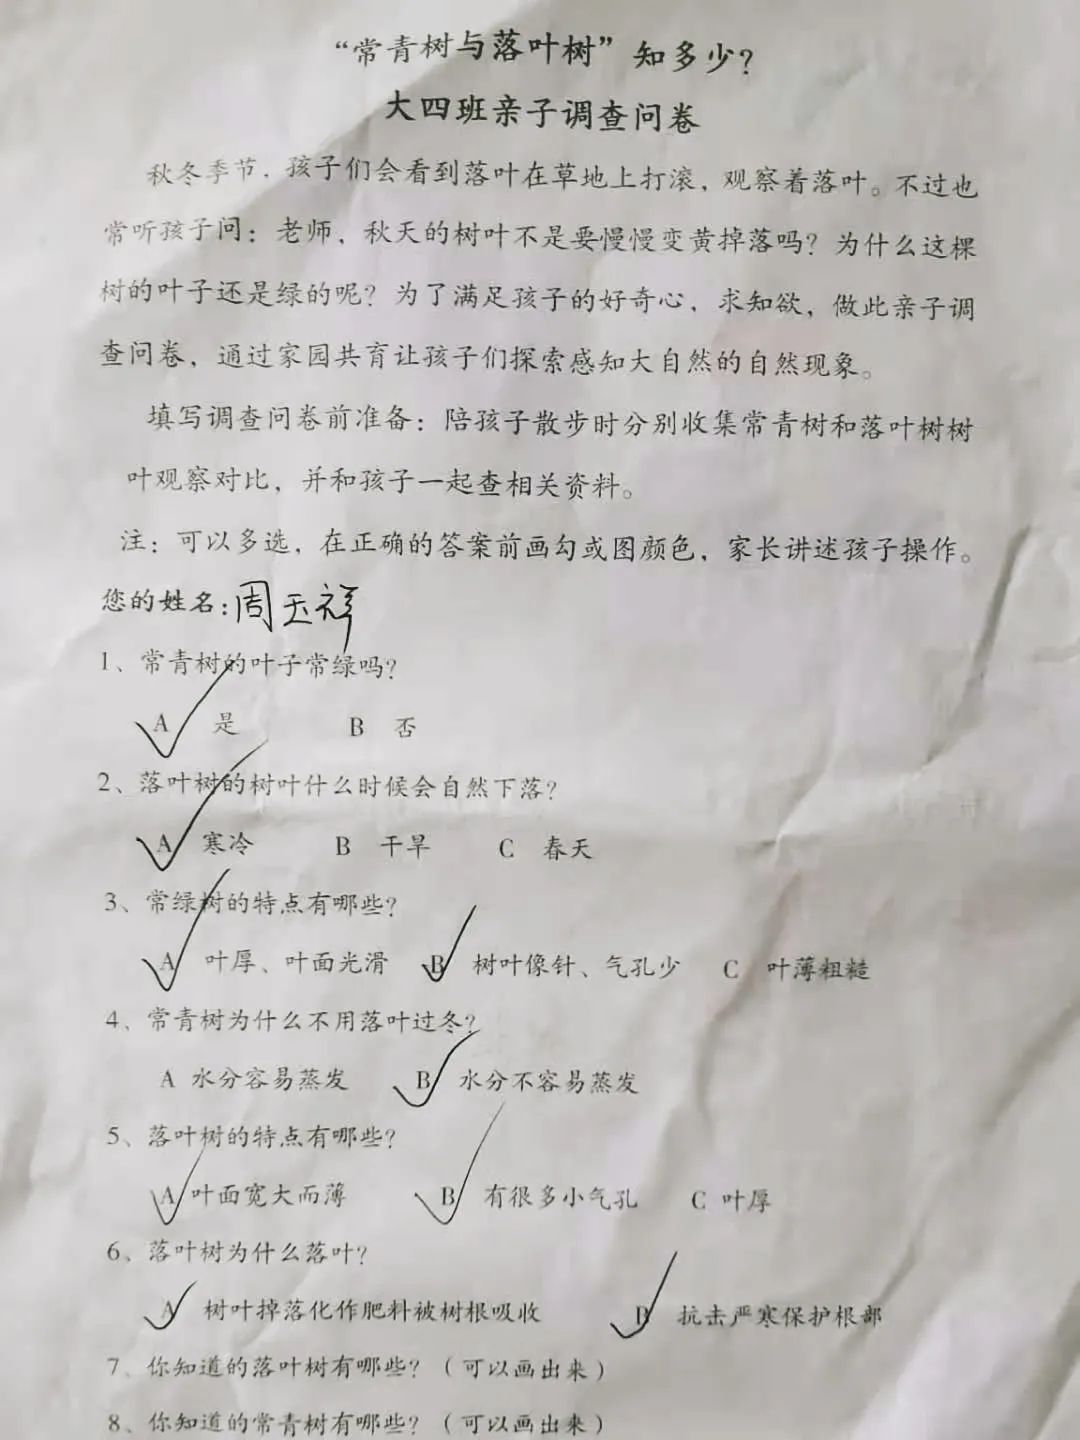 “常青树与落叶树”知多少？
大四班亲子调查问卷
秋冬季节，孩子们会看到落叶在草地上打滚，观察着落叶。不过也
常听孩子问：老师，秋天的树叶不是要慢慢变黄掉落吗？为什么这棵
树的叶子还是绿的呢？为了满足孩子的好奇心，求知欲，做此亲子调
查问卷，通过家园共育让孩子们探索感知大自然的自然现象。
填写调查问卷前准备：陪孩子散步时分别收集常青树和落叶树树
叶观察对比，并和孩子一起查相关资料。
注：可以多选，在正确的答案前画勾或图颜色，家长讲述孩子操作。
您的姓名：周玉祥
1、常青树的叶子常绿吗？
A 是 B 否
2、落叶树的树叶什么时候会自然下落？
A 寒冷 B 干旱 C 春天
3、常绿树的特点有哪些？
A 叶厚、叶面光滑 B 树叶像针、气孔少 C 叶薄粗糙
4、常青树为什么不用落叶过冬？
A 水分容易蒸发 B 水分不容易蒸发
5、落叶树的特点有哪些？
A 叶面宽大而薄 B 有很多小气孔 C 叶厚
6、落叶树为什么落叶？
A 树叶掉落化作肥料被树根吸收 B 抗击严寒保护根部
7、你知道的落叶树有哪些？（可以画出来）
8、你知道的常青树有哪些？（可以画出来）